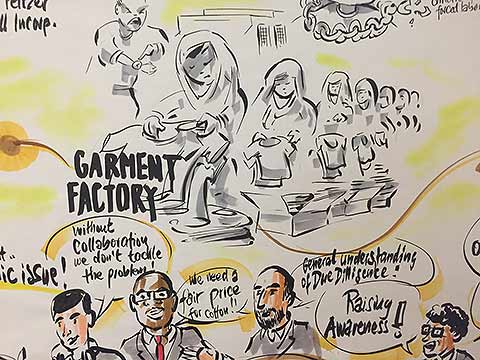 ll Incorp.
forced labo
GARMENT
FACTORY
Without
Collaboration
we don't tackle
the problem
ic issue!
We need a
fair price
for cotton!!
General understanding
of Due Dilligence!
Raising
Awareness!!